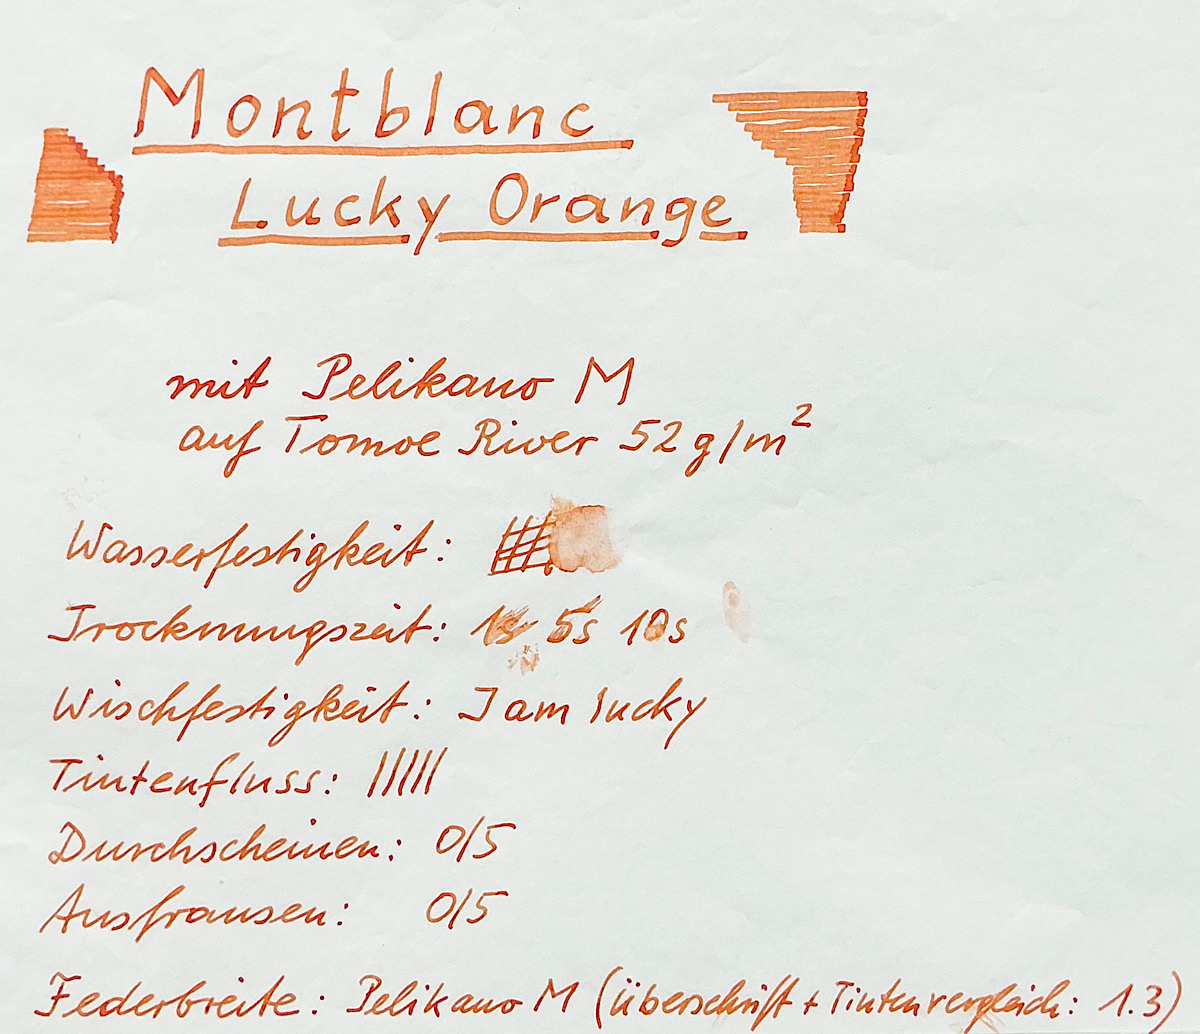 Montblanc
Lucky Orange
mit Pelikano M
auf Tomoe River 52 g/m²
Wasserfestigkeit:
Trocknungszeit: 1s 5s 10s
Wischfestigkeit: I am lucky
Tintenfluss: |||||
Durchscheinen: 0/5
Ausfransen: 0/5
Federbreite: Pelikano M (Überschrift + Tintenvergleich: 1.3)